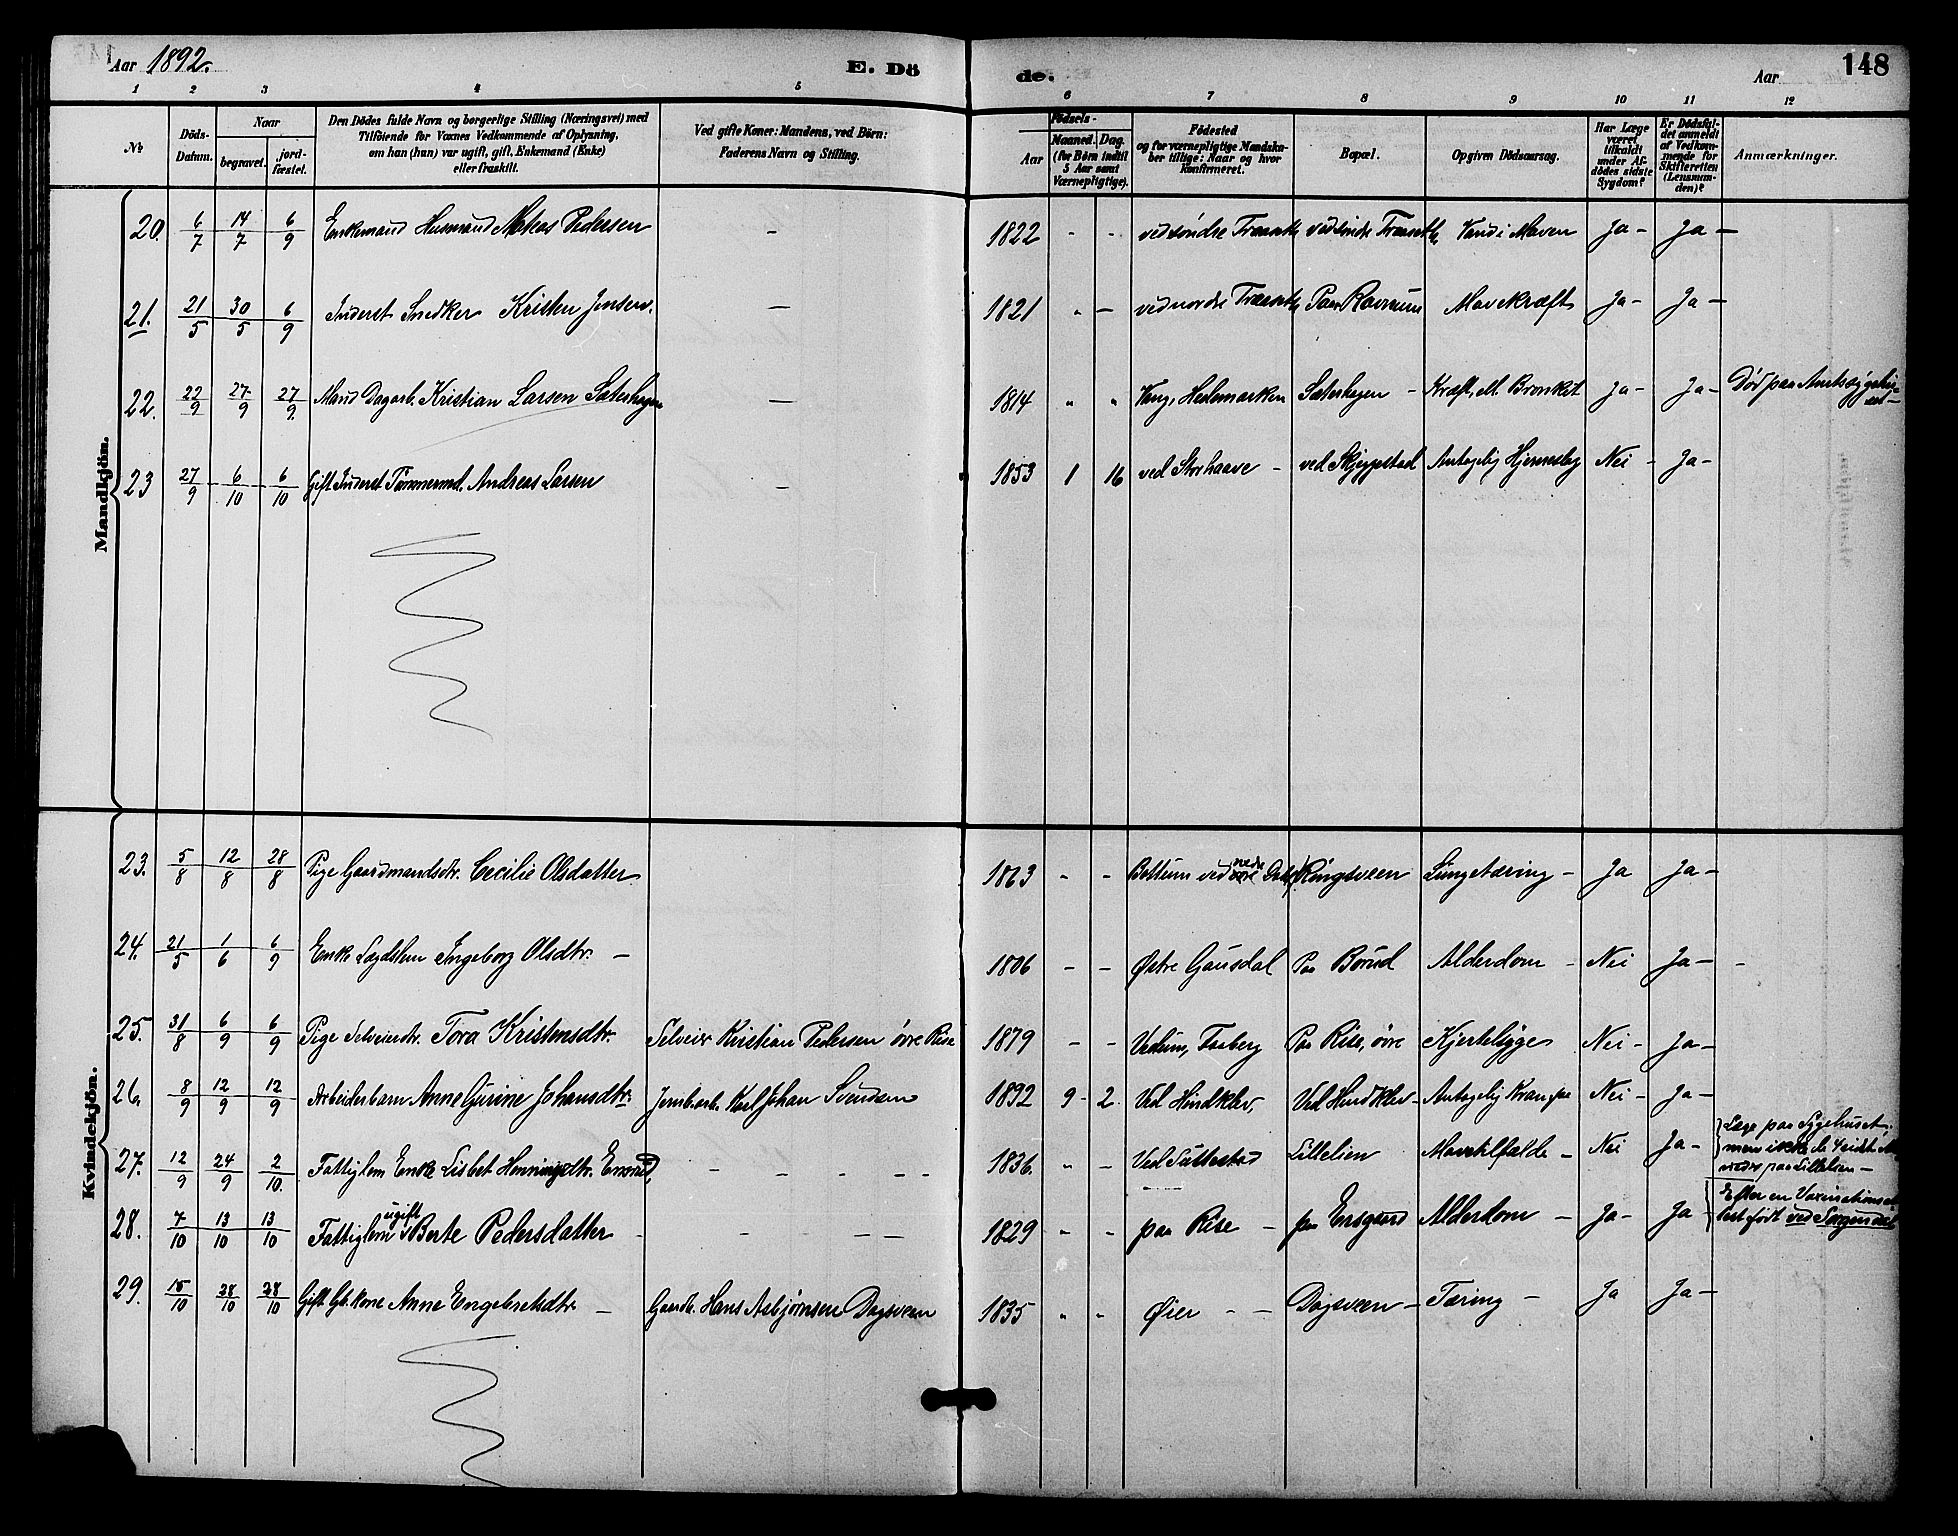 Aar 1892.
E. Dö
de.
Aar
148
1 2 3 4 5 6 7 8 9 10 11 12
№
Döds-
Datum.
Naar
begravet.
jord-
fæstet.
Den Dödes fulde Navn og borgerlige Stilling (Næringsvei) med
Tilföiende for Voxnes Vedkommende af Oplysning,
om han (hun) var ugift, gift, Enkemand (Enke)
eller fraskilt.
Ved gifte Koner: Mandens, ved Börn:
Faderens Navn og Stilling.
Födsels-
Aar
Maaned. Dag.
(for Börn indtil
5 Aar samt
Værnepligtige).
Födested
og for værnepligtige Mandska-
ber tillige: Naar og hvor
konfirmeret.
Bopæl.
Opgiven Dödsaarsag.
Har Læge
været
tilkaldt
under Af-
dödes sidste
Sygdom?
Er Dödsfal-
det anmeldt
af Vedkom-
mende for
Skifteretten
(Lensman-
den)?
Anmærkninger.
Mandkjön.
20. 6/7 14/7 6/9 Enkemand Husmand Mateas Pedersen - 1822 - - ved søndre Traaseth ved søndre Traaseth Vand i Maven Ja - Ja -
21. 21/5 30/5 6/9 Inderst Snedker Kristen Jensen. - 1821 " - ved nordre Traaseth Paa Rovrum Mavekræft Ja - Ja -
22. 22/9 27/9 27/9. Mand Dagarb. Kristian Larsen Sæterhagen - 1814 " " Vang, Hedemarken Sæterhagen - Kræft, ell. Bronkit Ja - Ja - Død paa Amtssygehu-
set -
23 27/9 6/10 6/10 Gift Inderst Tømmermd. Andreas Larsen - 1853 1 16 ved Storhaave - ved Skjeggestad Antagelig Hjerneslag Nei - Ja -
Kvindekjön.
23. 5/8 12/8 28/8 Pige Gaardmandsdtr. Cecilie Olsdatter 1863 - - Bøttum ved nedre Ringsveen Lungetæring - Ja Ja -
24. 21/5 1/6 6/9 Enke Lægdslem Ingeborg Olsdtr. - 1806 - - Østre Gausdal Paa Børud Alderdom - Nei Ja - -
25. 31/8 6/9 6/9 Pige Selveierdtr. Tora Kristensdtr. Selveier Kristian Pedersen øvre Rise 1879 - - Vedum, Faaberg Paa Rise, øvre Kjertelsyge Nei - Ja -
26. 8/9 12/9 12/9 Arbeiderbarn Anne Gurine Johansdtr. Jernb.arb. Karl Johan Svendsen 1892 9 - 2. Ved Hindklev, Ved Hindklev - Antagelig Krampe Nei - Ja -
27. 12/9 24/9 2/10. Fattiglem Enke Lisbet Henningsdtr. - - - - - 1836. " - Ved Suttestad Lillelien Mavetilfælde - Nei Ja - Læge paa Sygehuset,
men ikke de 4 sidste
paa Lillelien -
28. 7/10 13/10 13/10 Fattiglem ugift Berte Pedersdatter - - - - - 1829 - - paa Rise - paa Ensgaard Alderdom - Ja - Ja Efter en Vaxinationsat-
test født ved Sorgendal
29. 15/10 28/10 28/10 Gift Gb. kone Anne Engebretsdtr. - Gaardb. Hans Asbjørnsen Dagsveen 1835 " " Øier - - Dagsveen - Tæring - Ja Ja -